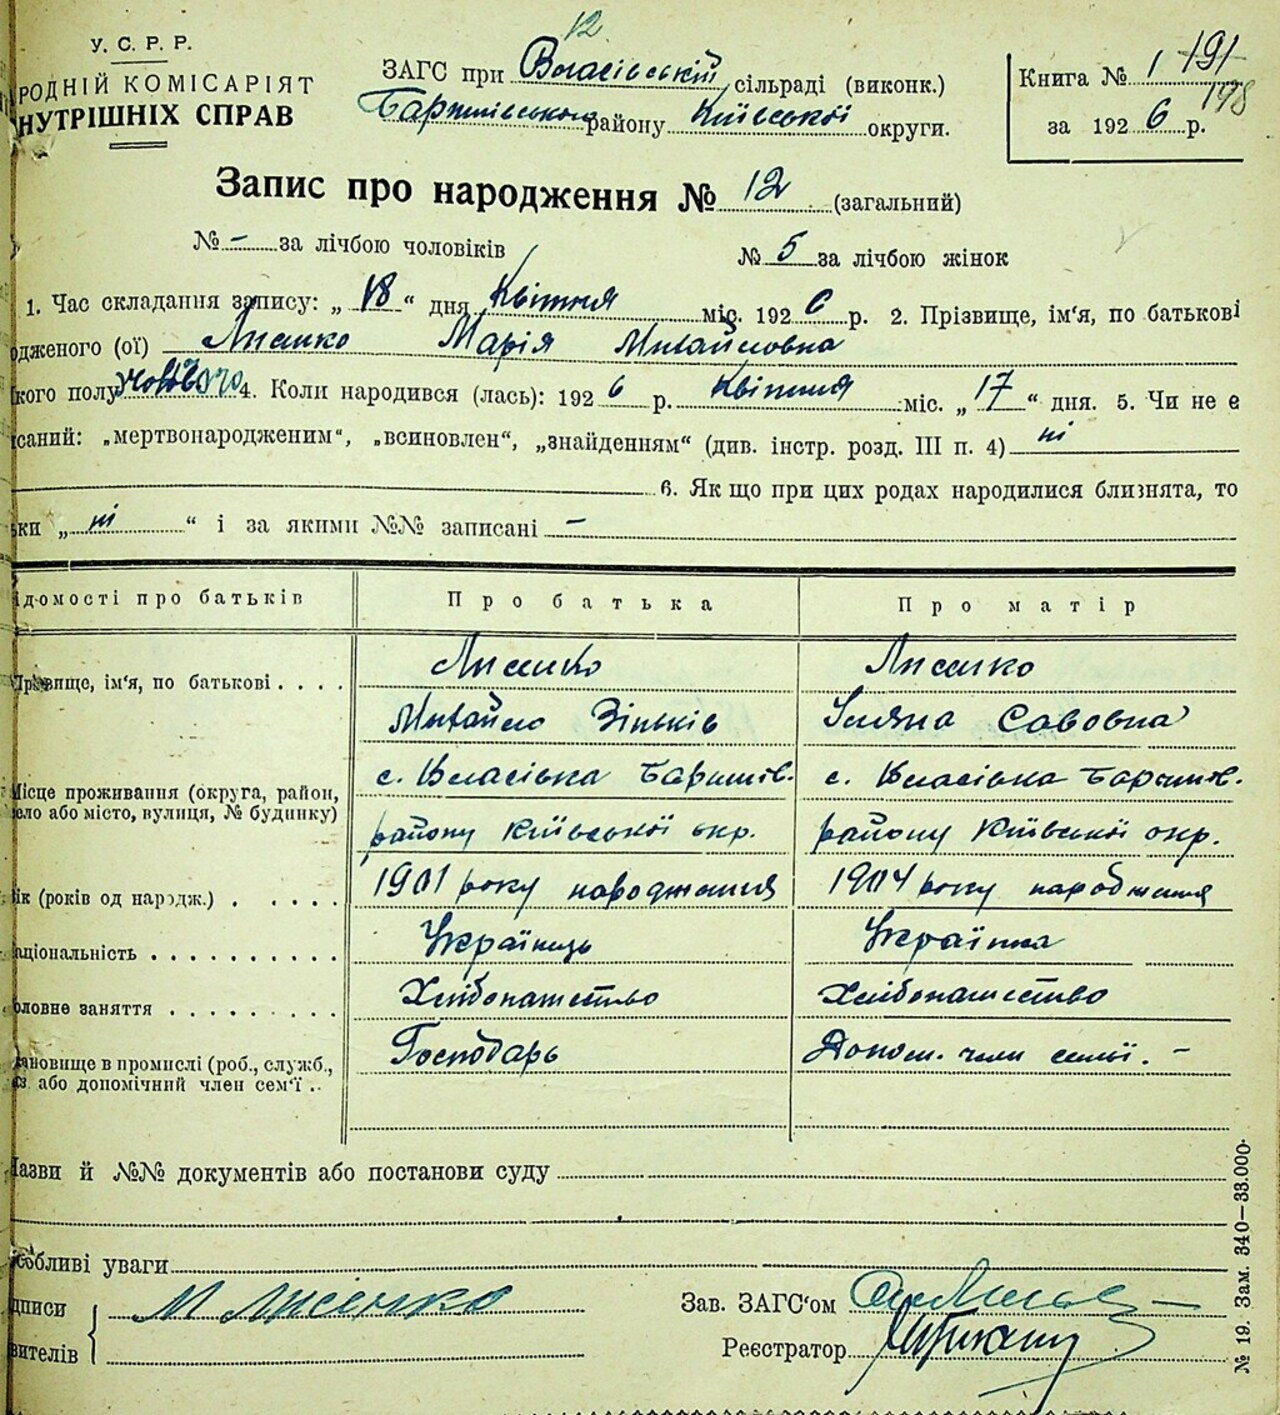 12
У. С. Р. Р.
РОДНІЙ КОМІСАРІЯТ
НУТРІШНІХ СПРАВ
ЗАГС при Власівській сільраді (виконк.)
Баришівського району Київської округи.
Книга № 1 191
198
за 1926 р.
Запис про народження № 12 (загальний)
№ - за лічбою чоловіків № 5 за лічбою жінок
1. Час складання запису: „ 18 “ дня Квітня міс. 1926 р. 2. Прізвище, ім'я, по батькові
одженого (ої) Лисенко Марія Михайловна
кого полу 4. Коли народився (лась): 1926 р. Квітня міс. „ 17 “ дня. 5. Чи не є
саний: „мертвонародженим“, „всиновлен“, „знайденням“ (див. інстр. розд. III п. 4) ні
6. Як що при цих родах народилися близнята, то
ьки „ ні “ і за якими №№ записані -
ідомості про батьків Про батька Про матір
Прізвище, ім'я, по батькові . . . . Лисенко Лисенко
Михайло Зіньків Уляна Савовна
Місце проживання (округа, район, с. Власівка Баришів. с. Власівка Баришів.
ело або місто, вулиця, № будинку) району Київської окр. району Київської окр.
ік (років од народж.) . . . . . 1901 року народження 1904 року народження
аціональність . . . . . . . . . . Українець Українка
оловне заняття . . . . . . . . . Хліборобство Хліборобство
ановище в промислі (роб., служб., Господарь Допом. член семьї. -
з або допомічний член сем'ї ..
Назви й №№ документів або постанови суду
собливі уваги
дписи М Лисенко Зав. ЗАГС'ом
вителів Реєстратор
№ 19. Зам. 340—33.000.